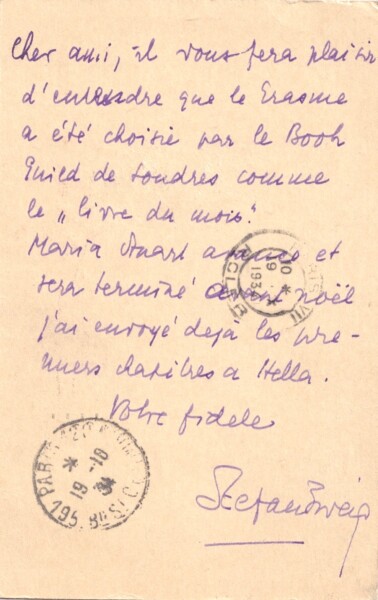 Cher ami, il vous fera plaisir
d'entendre que le Erasme
a été choisie par le Book
Guild de Londres comme
le „livre du mois".
Maria Stuart avance et
sera terminé avant noël
j'ai envoyé deja les pre-
miers chapitres a Hella.
Votre fidele
Stefan Zweig
10 *
19
1934
VII
PARIS
* 19 -10
34 *
195, Bd St G